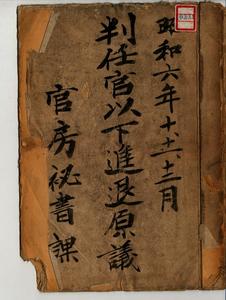 昭和六年十、十一、十二月
判任官以下進退原議
官房秘書課